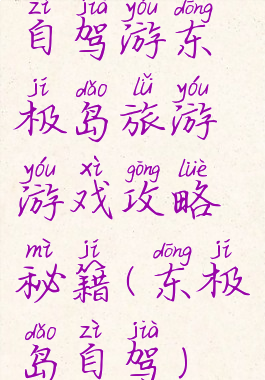 zì jià yóu dōng
自驾游东
jí dǎo lǚ yóu
极岛旅游
yóu xì gōng lüè
游戏攻略
mì jí ( dōng jí
秘籍(东极
dǎo zì jià
岛自驾)